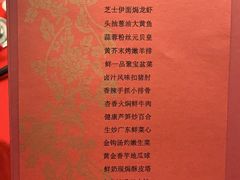 芝士伊面焗龙虾
头抽葱油大黄鱼
蒜蓉粉丝元贝皇
黄芥末烤嫩羊排
鲜一品聚宝盆菜
卤汁风味扣猪肘
香辣手抓小排骨
杏香火焗鲜牛肉
健康芦笋炒百合
生炒广东鲜菜心
金钩汤灼嫩生菜
黄金香芋地瓜球
鲜奶现焗酥皮塔